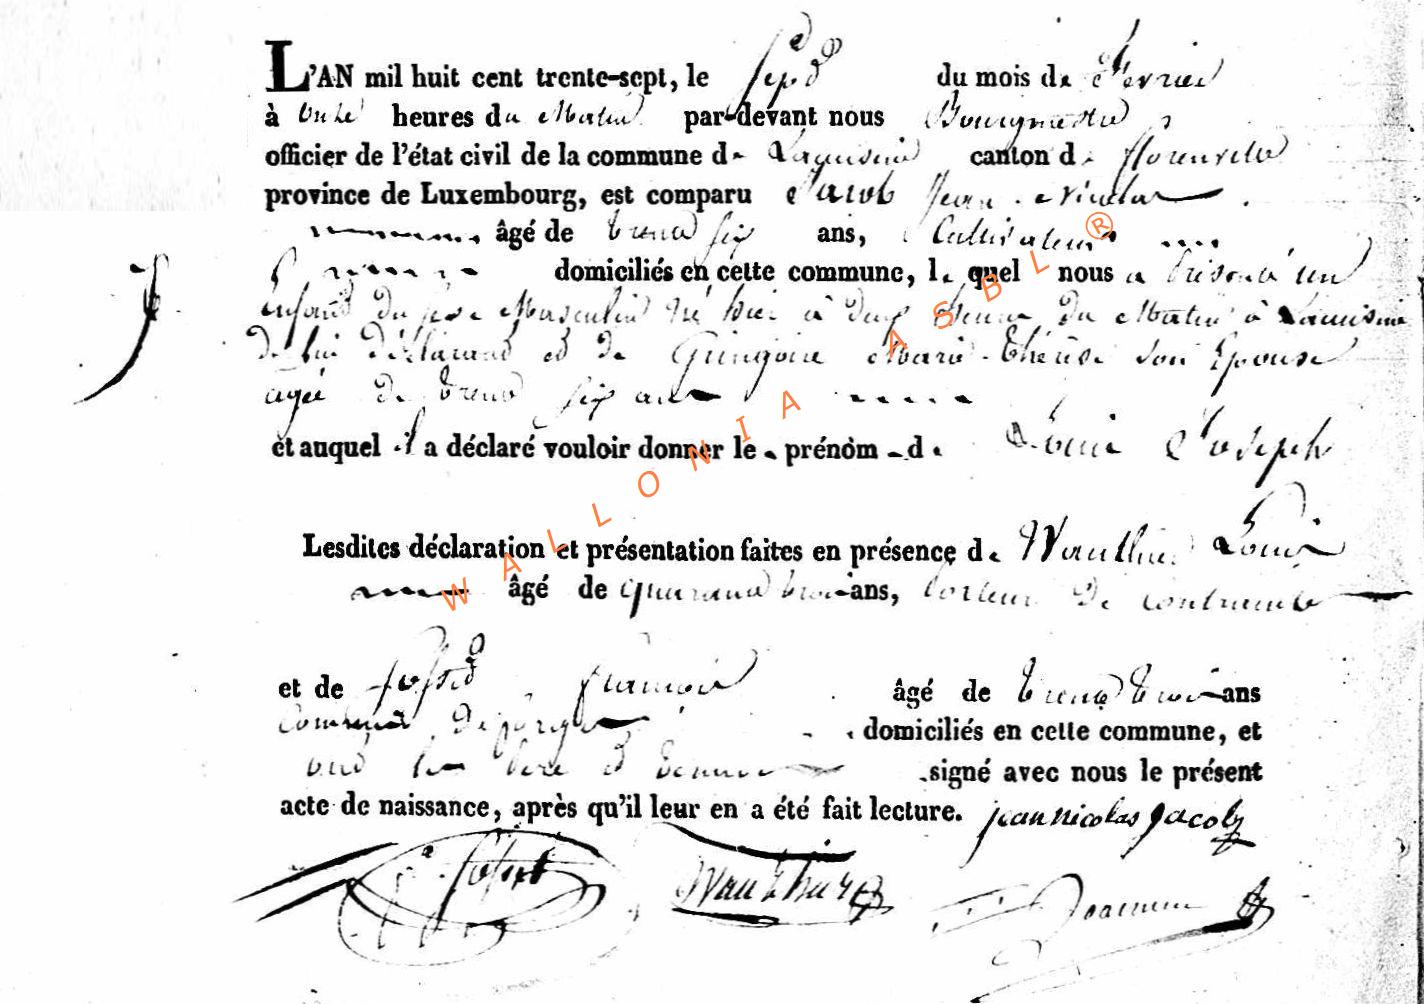 L'AN mil huit cent trente-sept, le sept du mois de fevrier
à onze heures du Matin par-devant nous Bourgmestre
officier de l'état civil de la commune de canton de florenville
province de Luxembourg, est comparu Jacob Jean Nicolas
âgé de trente six ans, Cultivateur
domiciliés en cette commune, lequel nous a présenté un
enfant du sexe Masculin né hier à deux heures du Matin à
de lui déclarant et de Guingoire Marie Thérèse son Epouse
agée de trente six ans
et auquel il a déclaré vouloir donner le prénom de Louis Joseph
Lesdites déclaration et présentation faites en présence de Wauthier Louis
âgé de quarante trois ans, de
et de françois âgé de trente trois ans
domiciliés en cette commune, et
ont les père et témoins signé avec nous le présent
acte de naissance, après qu'il leur en a été fait lecture. jean nicolas jacob
Wauthier
WALLONIA ASBL ®